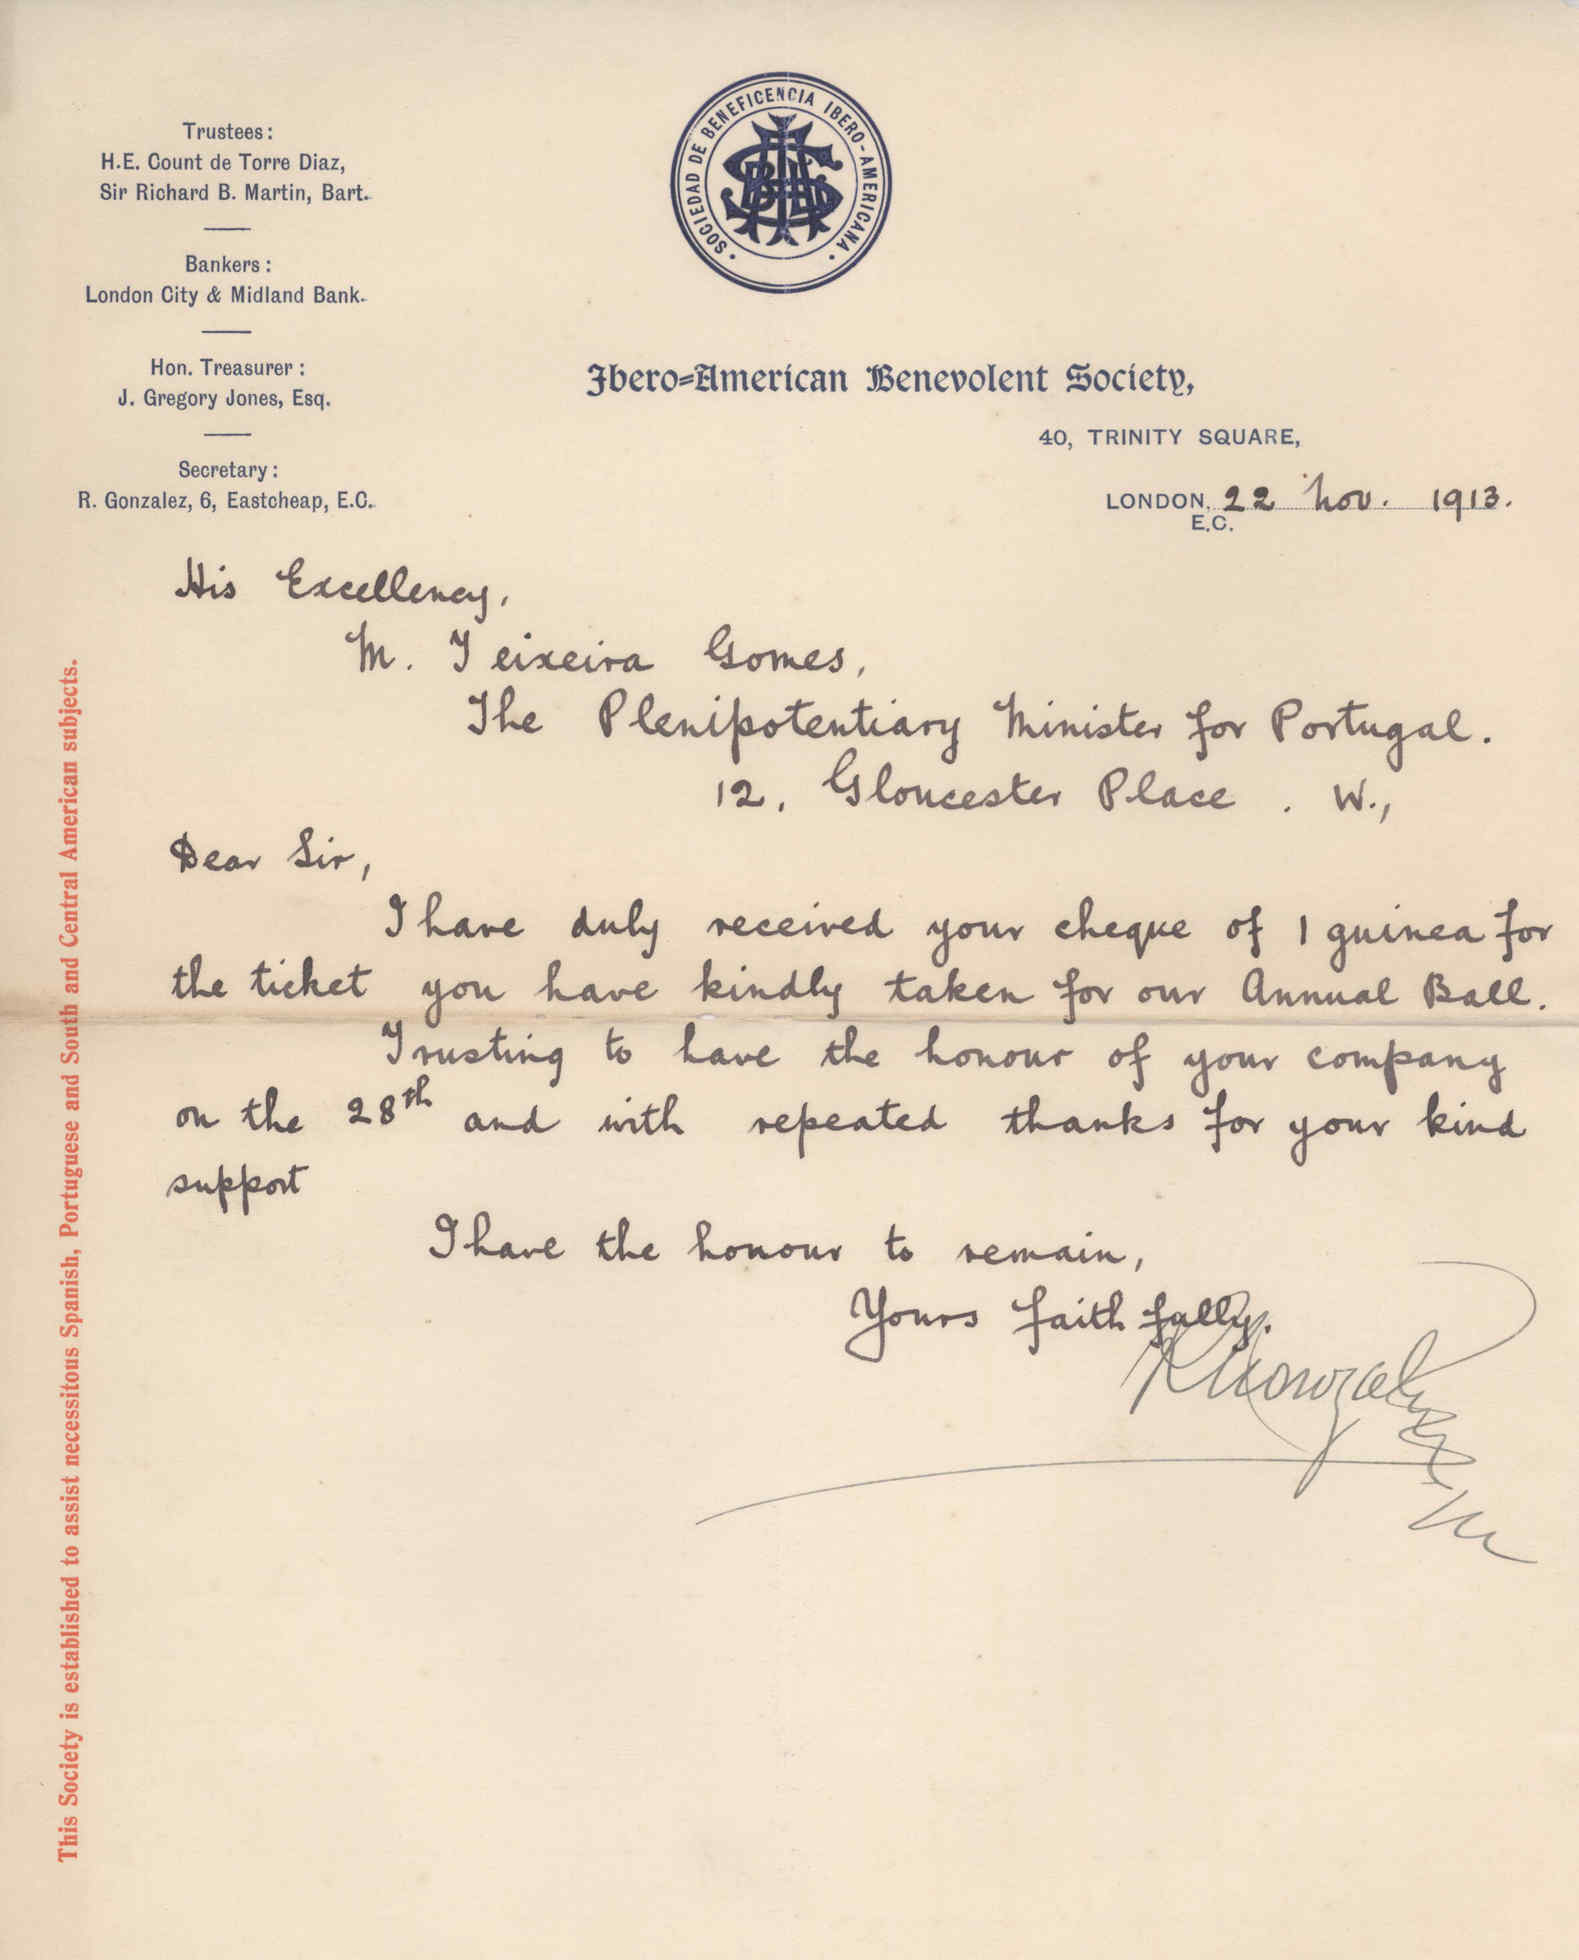 Trustees:
H.E. Count de Torre Diaz,
Sir Richard B. Martin, Bart.
Bankers:
London City & Midland Bank.
Hon. Treasurer:
J. Gregory Jones, Esq.
Secretary:
R. Gonzalez, 6, Eastcheap, E.C.
· SOCIEDAD DE BENEFICENCIA IBERO-AMERICANA ·
Ibero-American Benevolent Society,
40, TRINITY SQUARE,
LONDON, 22 Nov. 1913.
E.C.
His Excellency,
M. Teixeira Gomes,
The Plenipotentiary Minister for Portugal.
12, Gloucester Place. W.,
Dear Sir,
I have duly received your cheque of 1 guinea for
the ticket you have kindly taken for our Annual Ball.
Trusting to have the honour of your company
on the 28th and with repeated thanks for your kind
support
I have the honour to remain,
Yours faithfully.
R Gonzalez
This Society is established to assist necessitous Spanish, Portuguese and South and Central American subjects.